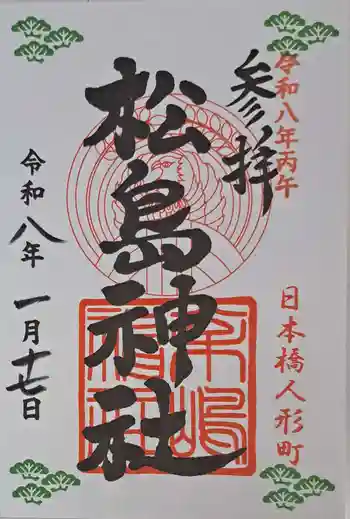 令和八年丙午
参拝
日本橋人形町
松島神社
令和八年 一月十七日